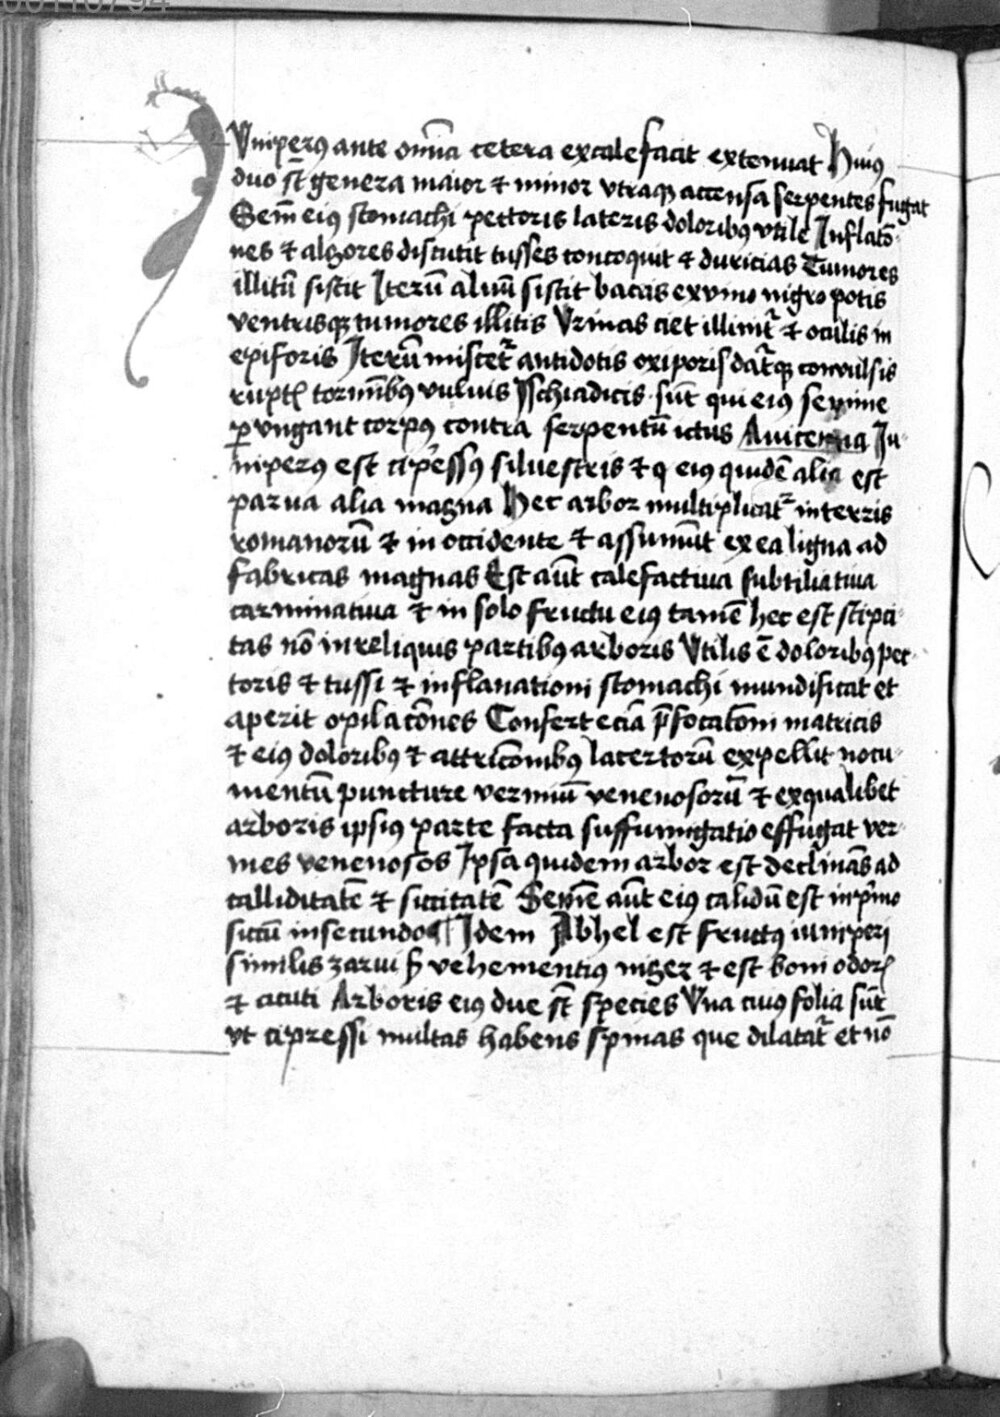 00110794
JVniperꝰ ante om̄ia cetera excalefacit extenuat Huiꝰ
duo st̄ genera maior ⁊ minor vtraqꝫ accensa serpentes fugat
Sem̄ eiꝰ stomachi pectoris lateris doloribꝰ vtile Inflatō-
nes ⁊ algores discutit tusses concoquit ⁊ duricias Tumores
illitū sistit Iterū aluū sistit baccis ex vino nigro potis
ventrisqꝫ tumores illitis Vrinas ciet illinit᷑ ⁊ oculis in
epiforis Iterū miscet᷑ antidotis oxiporis dat᷑qꝫ convulsis
ruptꝭ torminībꝰ vuluis Ischiadicis sūt qui eiꝰ semine
ꝑvngant corpꝰ contra serpentū ictus Auicenna Iu-
niperꝰ est cip̄essꝰ siluestris ⁊ q eiꝰ quidē alia est
parua alia magna Hec arbor multiplicat᷑ in terris
romanorū ⁊ in occidente ⁊ assumūt ex ea ligna ad
fabricas magnas Est aūt calefactiua subtiliatiua
carminatiua ⁊ in solo fructu eiꝰ tamē hec est stipti-
tas nō in reliquis partibꝰ arboris Vtilis ē doloribꝰ pec-
toris ⁊ tussi ⁊ inflanationi stomachi mundificat et
aperit opilacōnes Confert eciā p̄focatōni matricis
⁊ eiꝰ doloribꝰ ⁊ attricōnibꝰ lacertorū expellit nocu-
mentū puncture vermiū venenosorū ⁊ ex qualibet
arboris ipsiꝰ parte facta suffumigatio effugat ver-
mes venenosos Ipsa quidem arbor est declinās ad
calliditatē ⁊ siccitatē Semē aūt eiꝰ calidū est in p̄mo
siccū in secundo ¶ Idem Abhel est fructꝰ iuniperi
similis zarui s̄ vehementiꝰ niger ⁊ est boni odorꝭ
⁊ acuti Arboris eiꝰ due st̄ species Vna cuiꝰ folia sūt
vt cipressi multas habens spinas que dilatat᷑ et nō